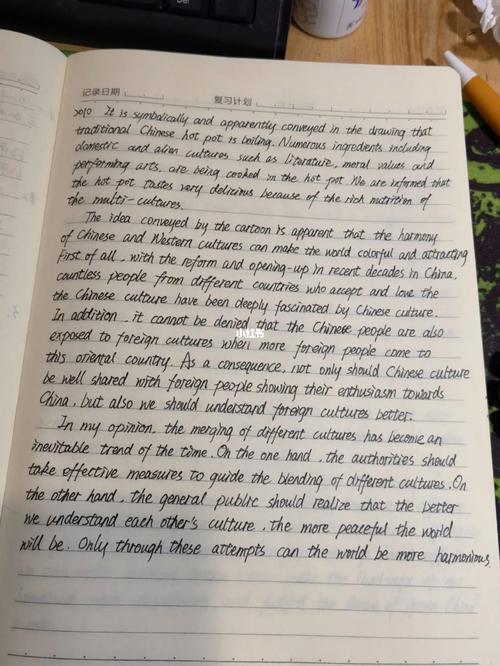 记录日期
复习计划
2010 It is symbolically and apparently conveyed in the drawing that
traditional Chinese hot pot is boiling. Numerous ingredients including
domestic and alien cultures such as literature, moral values and
performing arts, are being cooked in the hot pot. We are informed that
the hot pot tastes very delicious because of the rich nutrition of
the multi-cultures.
The idea conveyed by the cartoon is apparent that the harmony
of Chinese and Western cultures can make the world colorful and attracting
First of all, with the reform and opening-up in recent decades in China,
countless people from different countries who accept and love the
the Chinese culture have been deeply fascinated by Chinese culture.
In addition, it cannot be denied that the Chinese people are also
exposed to foreign cultures when more foreign people come to
this oriental country. As a consequence, not only should Chinese culture
be well shared with foreign people showing their enthusiasm towards
China, but also we should understand foreign cultures better.
In my opinion, the merging of different cultures has become an
inevitable trend of the time. On the one hand, the authorities should
take effective measures to guide the blending of different cultures. On
the other hand, the general public should realize that the better
we understand each other's culture, the more peaceful the world
will be. Only through these attempts can the world be more harmonious.
小红书